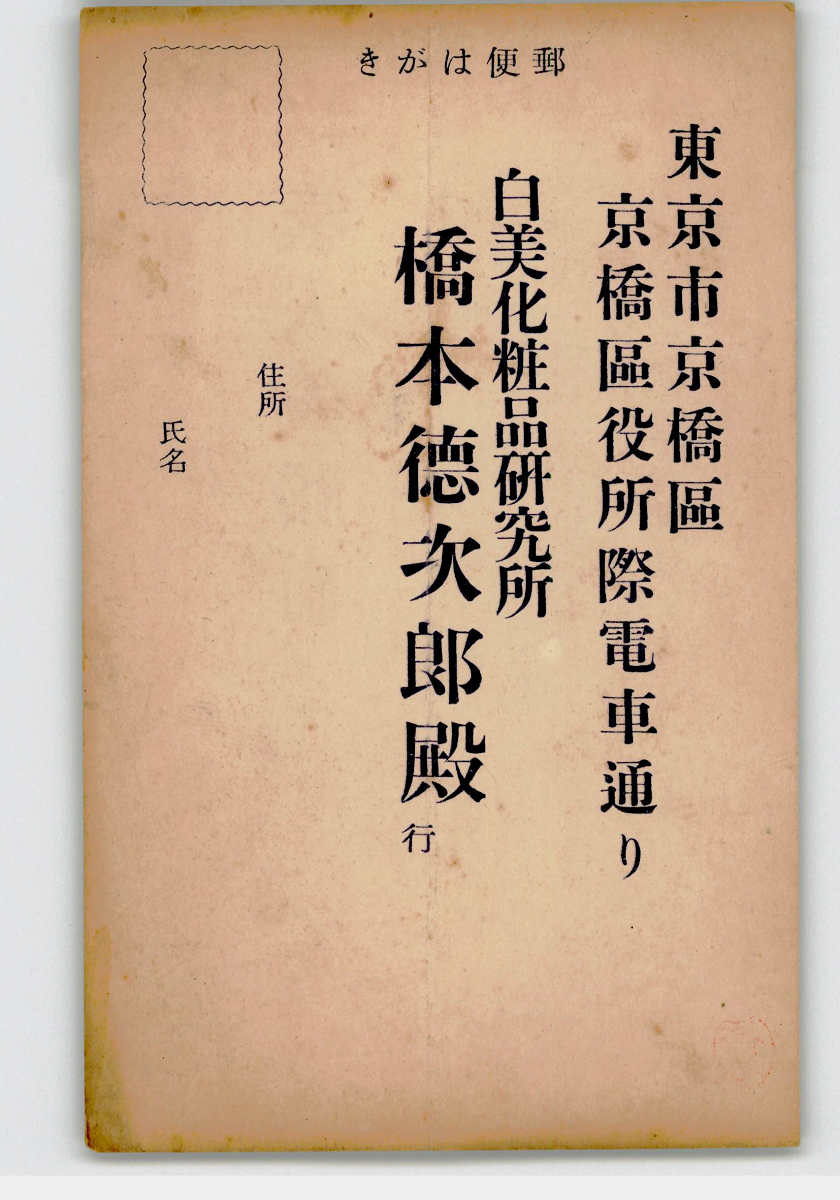 郵便はがき
東京市京橋區
京橋區役所際電車通り
白美化粧品研究所
橋本德次郎殿行
住所
氏名